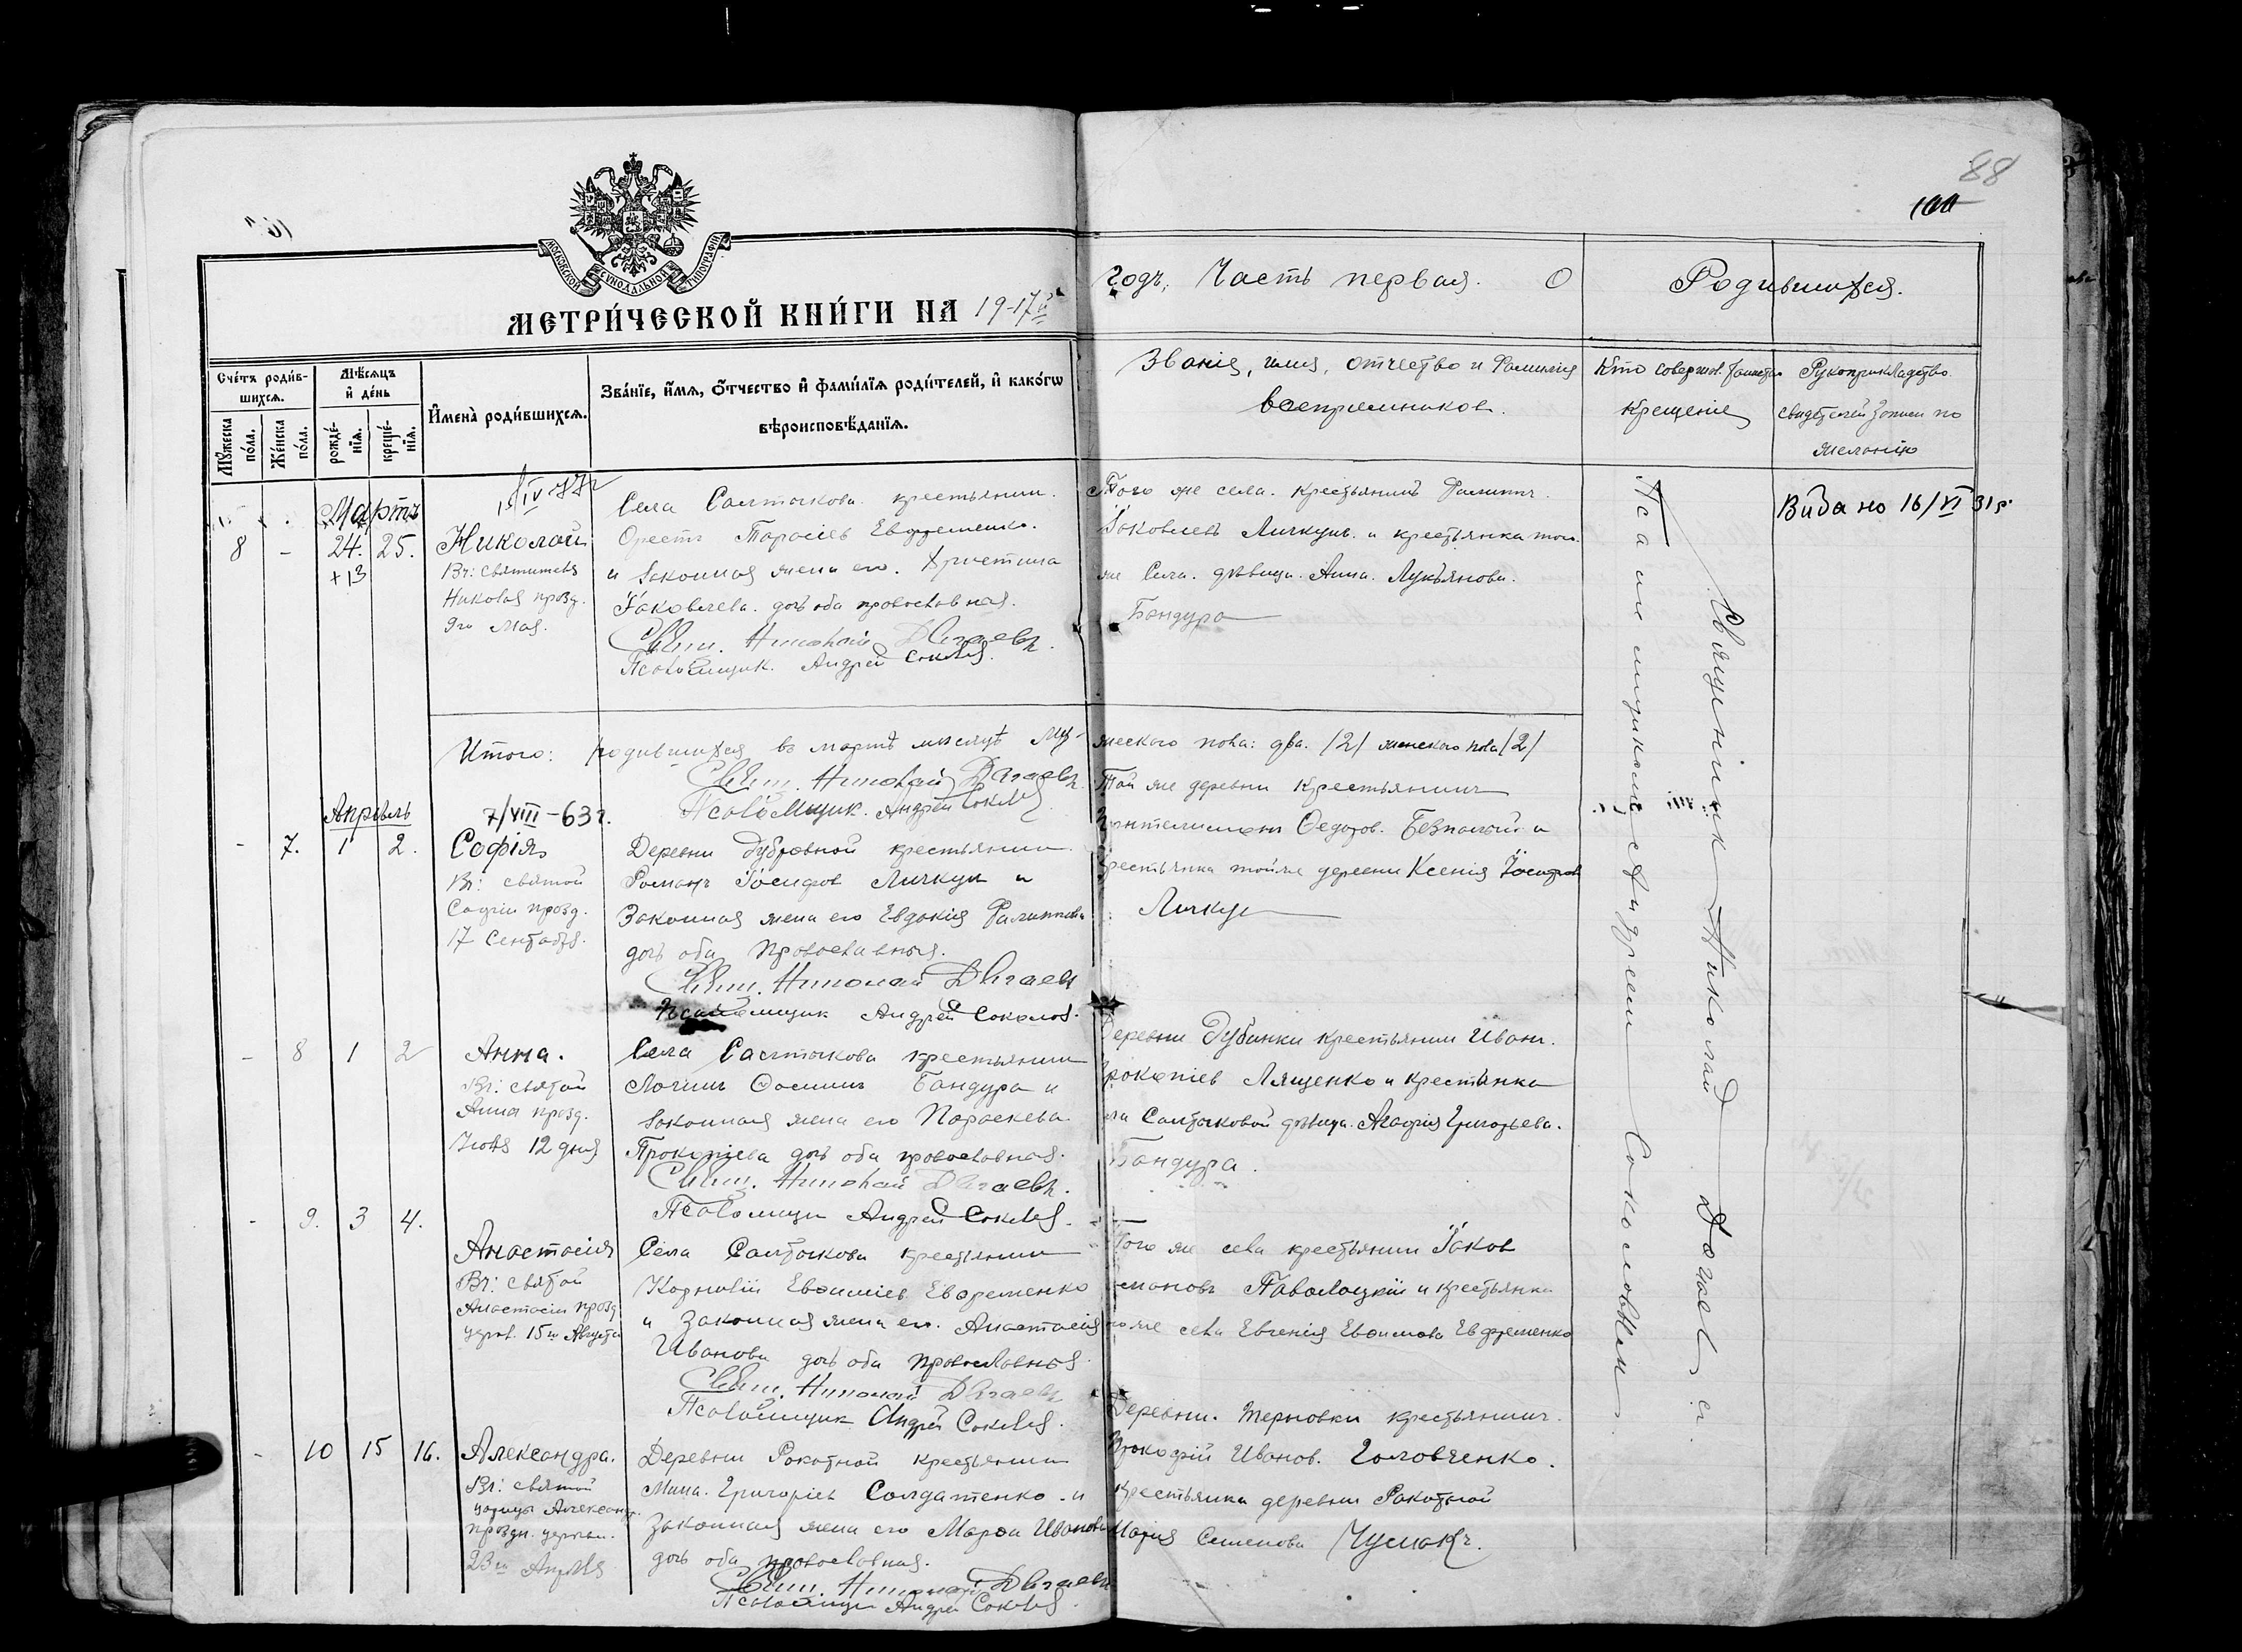 88
100
МОСКОВСКОЙ СУНОДАЛЬНОЙ ТИПОГРАФИИ
МЕТРИ́ЧЕСКОЙ КНИ́ГИ НА 19-17й
годъ, Часть первая. О Родившихся.
Сче́тъ роди́в-
шихся.
Мѣ́сяцъ
и҆ де́нь
Мꙋ́жеска по́ла.
Же́нска по́ла.
рожде́-
нїя.
креще́-
нїя.
И҆мена̀ роди́вшихся.
Зва́нїе, и҆́мя, ѻ҆́тчество и҆ фами́лїя роди́телей, и҆ како́гѡ
вѣроисповѣ́данїя.
Званія, имя, отчество и Фамилія
воспреемниковъ.
Кто соверш. таинство
крещенія
Рукоприкладство
свидетелей записи по
желанію
Мартъ
IV-77г
8 - 24. 25. Николай
+13
Вч: святителя
Николая празд.
9го Мая.
Села Салтычкова. крестьянин.
Орестъ Тарасіев Евфременко.
и законная жена его. Христина
Іаковлева. догъ оба православная.
Свящ. Николай Двгаевъ.
Псаломщик. Андрей Соколов.
Того же села. крестьянинъ Филиппъ.
Іаковлевъ Личкунъ. и крестьянка того
же Села. дѣвица. Анна. Лукьянова.
Бандура
Видано 16/VI 31г.
Итого: родившихся въ мартѣ мѣсяцѣ му-
жескаго пола: два. /2/ женскаго пола /2/
Свящ. Николай Двгаевъ
Псаломщик. Андрей Соколов.
Апрѣль
7/VIII-63г.
- 7. 1 2. Софія
Вч: святой
Софіи празд.
17 Сентября.
Деревни Дубровной крестьянин
Романъ Іосифов Личкун и
Законная жена его Евдокія Филиппова
догъ оба Православная.
Свящ. Николай Двгаевъ
Псаломщик Андрей Соколов.
Той же деревни Крестьянинъ
Пантелимонъ Федоров. Безпалый и
крестьянка той же деревни Ксенія Іосифов
Личкун
- 8 1 2 Анна.
Вч: святой
Анны празд.
Іюня 12 дня
Села Салтычкова крестьянин
Логинъ Фоминъ Бандура и
законная жена его Параскева
Прокопіева догъ оба православная.
Свящ. Николай Двгаевъ.
Псаломщик Андрей Соколов.
Деревни Дубинки крестьянин Иванъ.
Прокопіев Лященко и крестьянка
села Салтычковой дѣвица. Агафія Григорьева.
Бандура.
- 9. 3 4.
Анастасія
Вч: святой
Анастасіи празд
церков. 15го Августа
Села Салтычкова крестьянин
Корнилій Евфиміев Евфременко
и Законная жена его. Анастасія
Иванова догъ оба православная
Свящ. Николай Двгаевъ
Псаломщик Андрей Соколов.
Того же села крестьянин Іаков
Павлоцкій и крестьянка
того же села Евгенія Евфимова Евфременко
- 10 15 16. Александра.
Вч: святой
царицы Александр.
праздн. церков.
23го Апрѣля
Деревни Рокитной крестьянин
Мина. Григоріев Солдатенко. и
законная жена его Марфа Иванова
догъ оба православная.
Свящ. Николай Двгаевъ
Псаломщик Андрей Соколов.
Деревни. Терновки крестьянинъ.
Прокофій Иванов. Головченко.
крестьянка деревни Ракитной
Марія Семенова Чумакъ.
Священник Николай
Псаломщикомъ Андреем Соколовым.